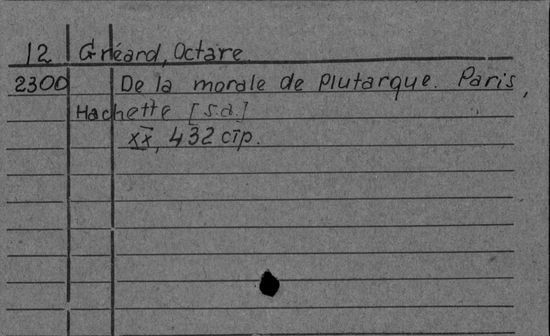 12 Gréard, Octave
2300 De la morale de Plutarque. Paris,
Hachette [s.a.]
XX, 432 стр.